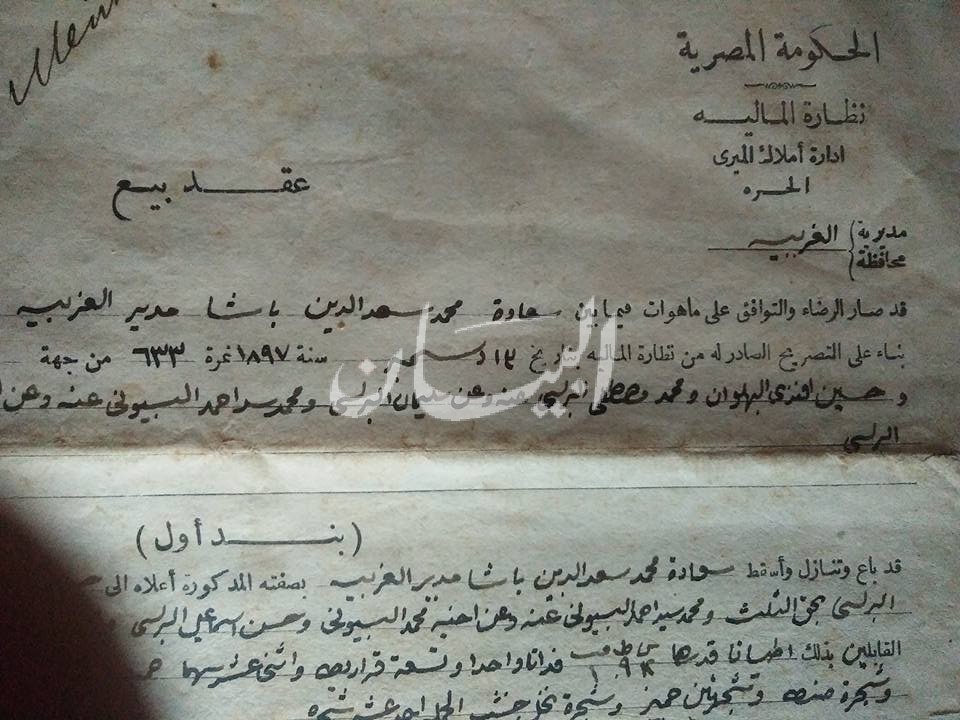 الحكومة المصرية
نظارة الماليه
ادارة أملاك الميرى
الحره
عقد بيع
مديرية
محافظة
الغربيه
قد صار الرضاء والتوافق على ماهوات فيما بين سعادة محمد سعد الدين باشا مدير الغربيه
بناء على التصريح الصادر له من نظارة الماليه بتاريخ ١٣ دسمبر سنة ١٨٩٧ نمرة ٦٣٣ من جهة
و حسين افندى البهلوان و محمد مصطفى البرلسى عنه وعن سليمان البرلسى و محمد سيد احمد البسيونى عنه وعن
البرلسى
البيان
(بند أول)
قد باع وتنازل وأسقط سعادة محمد سعد الدين باشا مدير الغربيه بصفته المذكورة أعلاه الى
البرلسى بحق الثلث و محمد سيد احمد البسيونى عنه وعن اخيه محمد البسيونى و حسن اسماعيل البرلسى
القابلين بذلك اطيانا قدرها فدانا واحدا وتسعة قراريط واثنى عشر سهما
وشجرة وشجرتين جميز وشجرة نخل احد عشر شجره